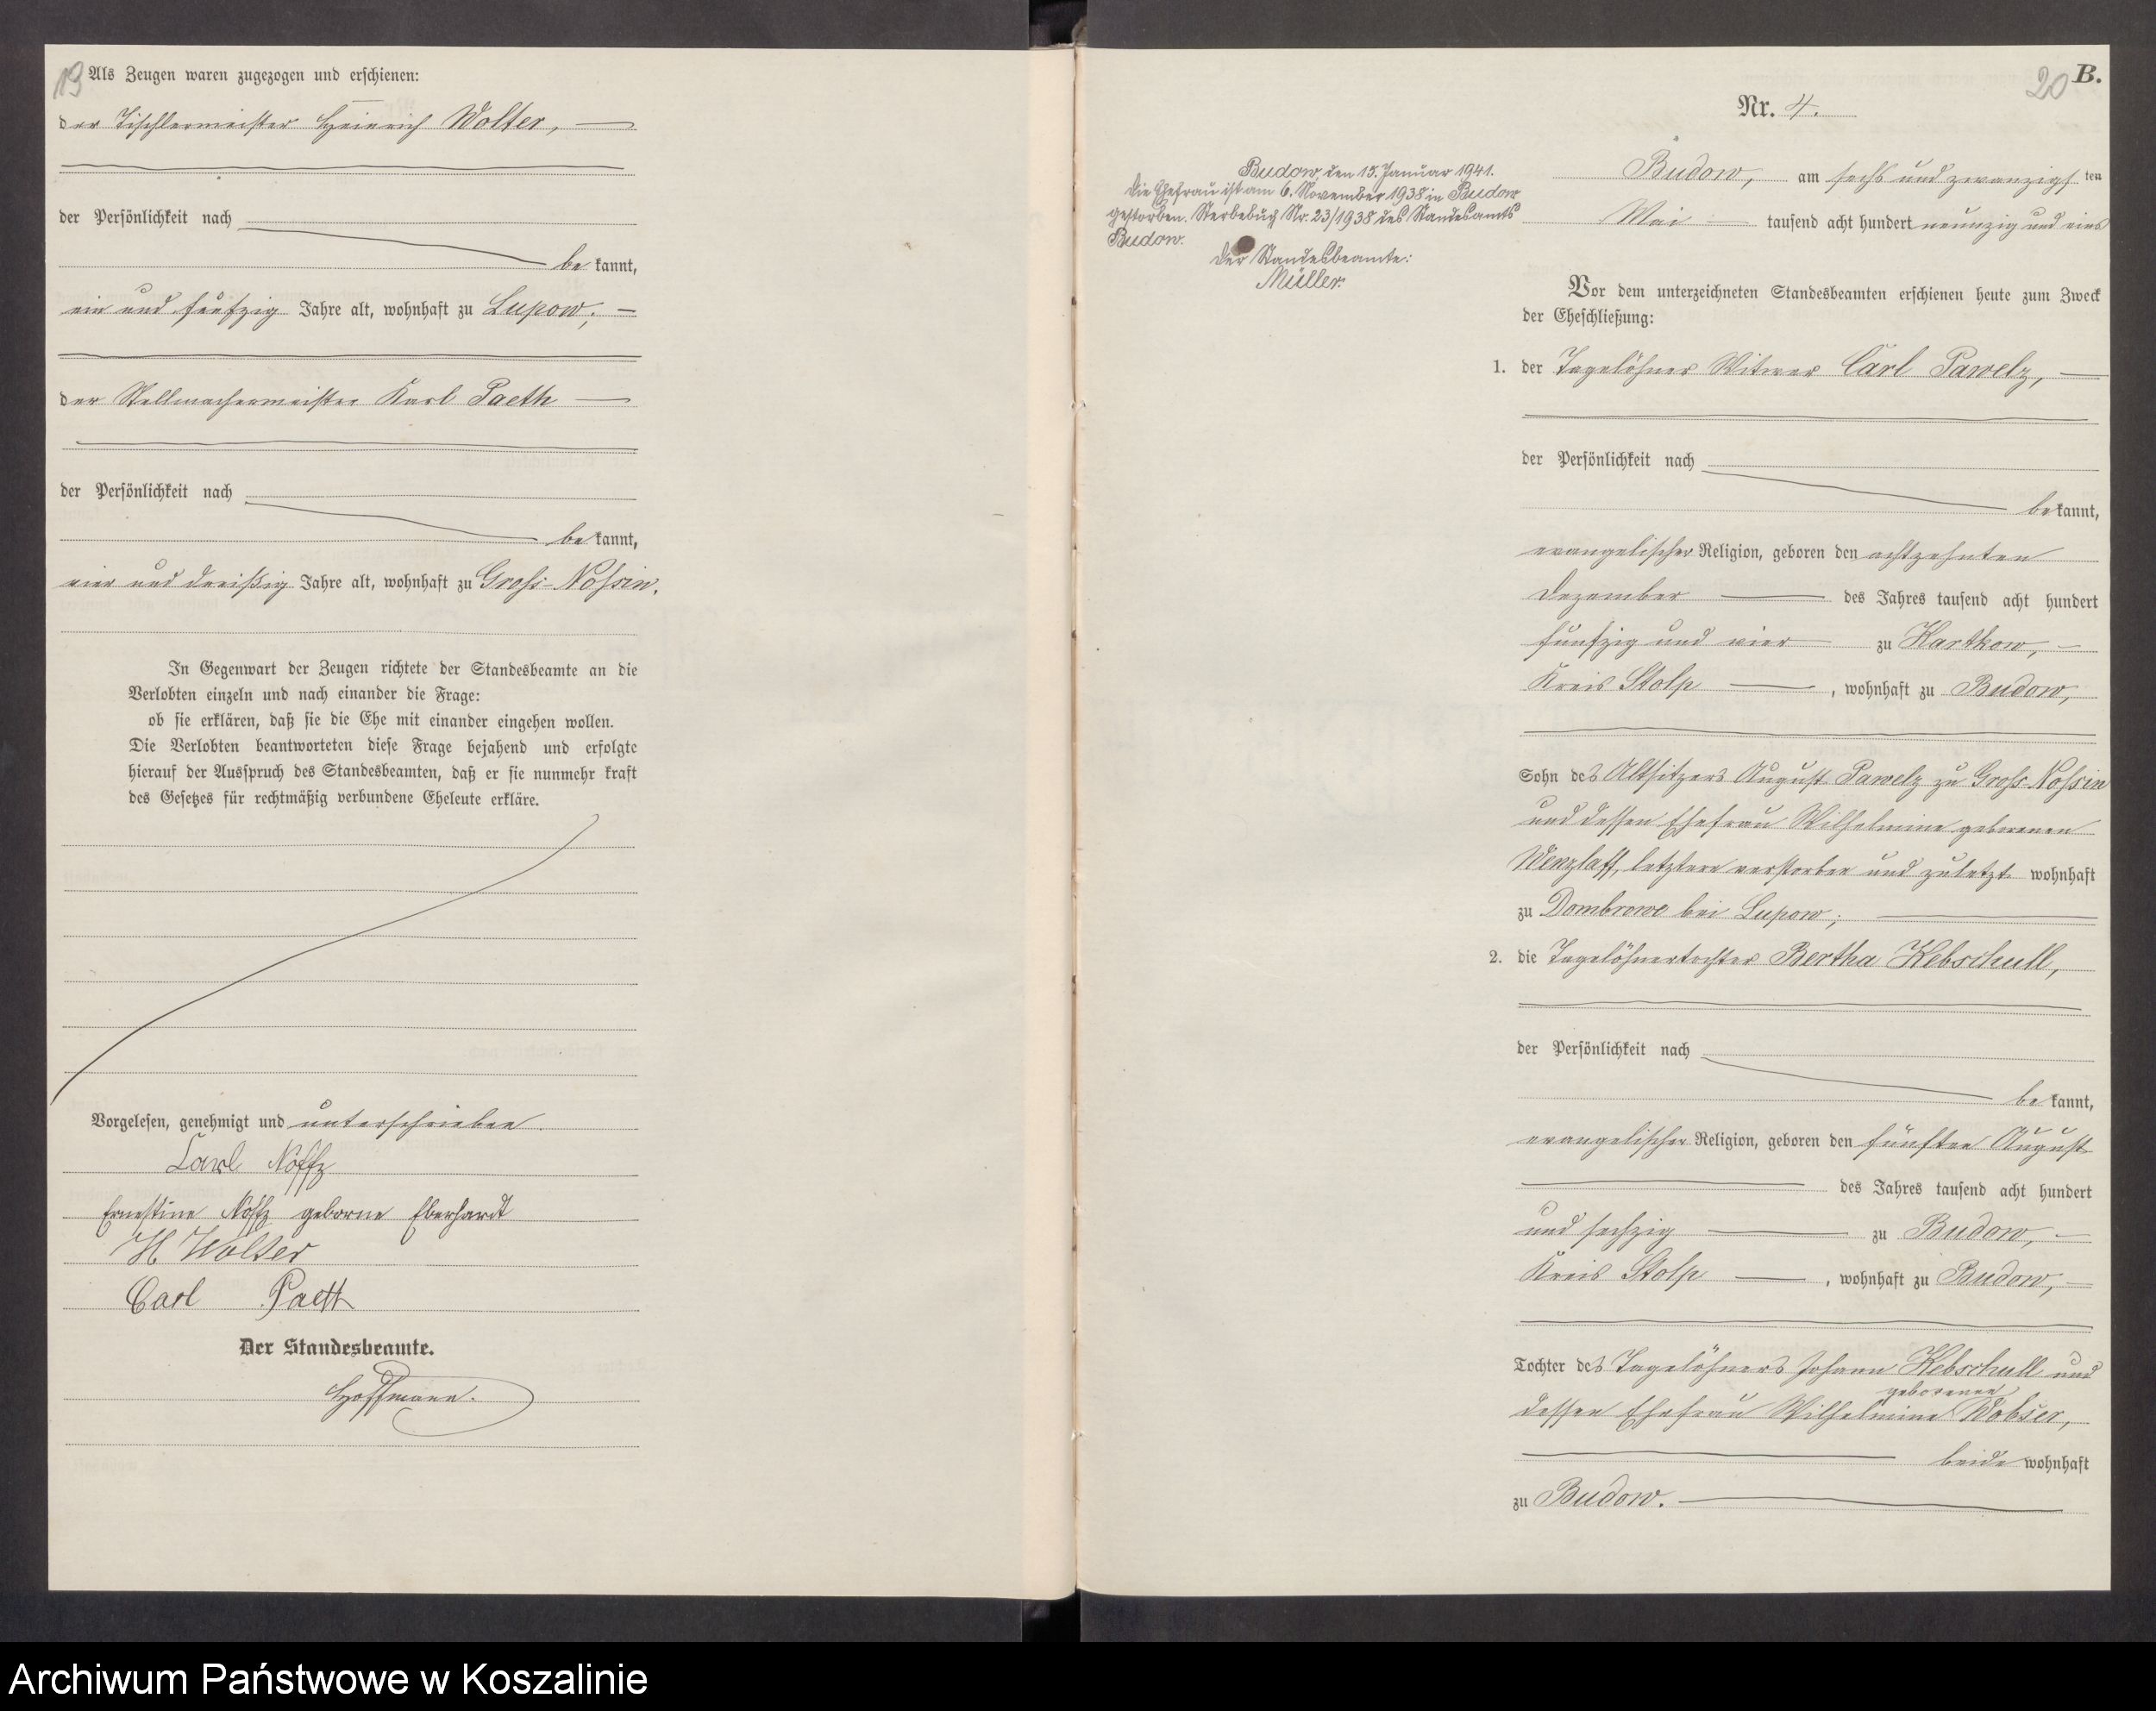 19
Als Zeugen waren zugezogen und erschienen:
der Tischlermeister Heinrich Wolter,
der Persönlichkeit nach
be kannt,
ein und fünfzig Jahre alt, wohnhaft zu Lupow;
der Stellmachermeister Karl Paeth
der Persönlichkeit nach
be kannt,
vier und dreißig Jahre alt, wohnhaft zu Gross-Nossin.
In Gegenwart der Zeugen richtete der Standesbeamte an die
Verlobten einzeln und nach einander die Frage:
ob sie erklären, daß sie die Ehe mit einander eingehen wollen.
Die Verlobten beantworteten diese Frage bejahend und erfolgte
hierauf der Ausspruch des Standesbeamten, daß er sie nunmehr kraft
des Gesetzes für rechtmäßig verbundene Eheleute erkläre.
Vorgelesen, genehmigt und unterschrieben.
Carl Noffz
Ernestine Noffz geborne Eberhardt
H Wolter
Carl Paeth
Der Standesbeamte.
Hoffmann.
20 B.
Nr. 4.
Budow, den 15. Januar 1941.
Die Ehefrau ist am 6. November 1938 in Budow
gestorben. Sterbebuch Nr. 23/1938 des Standesamts
Budow.
Der Standesbeamte:
Müller.
Budow, am sechs und zwanzigs ten
Mai tausend acht hundert neunzig und eins
Vor dem unterzeichneten Standesbeamten erschienen heute zum Zweck
der Eheschließung:
1. der Tagelöhner Witwer Carl Pawelz,
der Persönlichkeit nach
be kannt,
evangelischer Religion, geboren den achtzehnten
Dezember des Jahres tausend acht hundert
fünfzig und vier zu Kartkow,
Kreis Stolp, wohnhaft zu Budow,
Sohn des Altsitzers August Pawelz zu Gross-Nossin
und dessen Ehefrau Wilhelmine geborenen
Wenzlaff, letztere verstorben und zuletzt wohnhaft
zu Dombrowe bei Lupow;
2. die Tagelöhnertochter Bertha Kebschull,
der Persönlichkeit nach
be kannt,
evangelischer Religion, geboren den fünften August
des Jahres tausend acht hundert
und sechzig zu Budow,
Kreis Stolp, wohnhaft zu Budow,
Tochter des Tagelöhners Johann Kebschull und
dessen Ehefrau Wilhelmine geborenen Wobser,
beide wohnhaft
zu Budow.
Archiwum Państwowe w Koszalinie